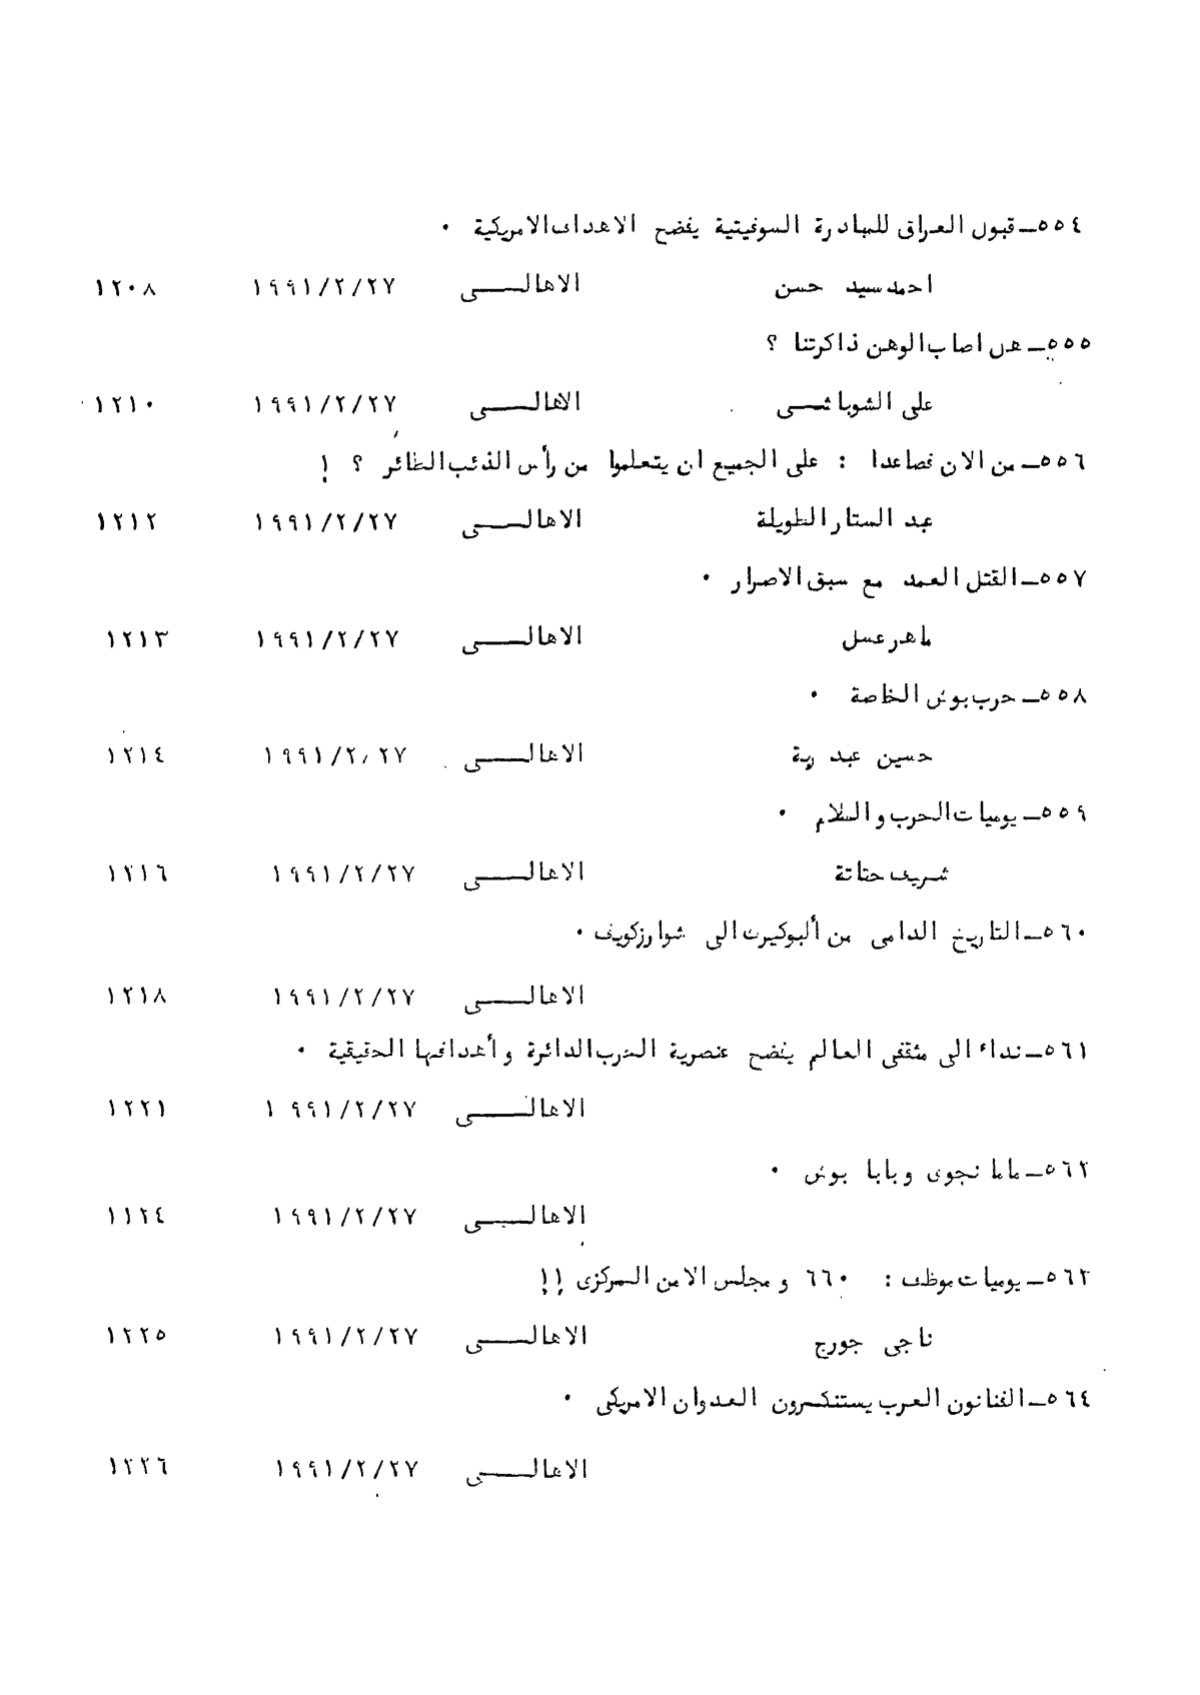 ٥٥٤ــ قبول العراق للمبادرة السوفيتية يفضح الاهداف الامريكية ٠
احمد سيد حسن الاهالـــــى ١٩٩١/٢/٢٧ ١٢٠٨
٥٥٥ــ هل اصاب الوهن ذاكرتنا ؟
على الشوباشـــى الاهالـــــى ١٩٩١/٢/٢٧ ١٢١٠
٥٥٦ــ من الان فصاعدا : على الجميع ان يتعلموا من رأس الذئب الطائر ؟ !
عبد الستار الطويلة الاهالـــــى ١٩٩١/٢/٢٧ ١٢١٢
٥٥٧ــ القتل العمد مع سبق الاصرار ٠
ماهر عسل الاهالـــــى ١٩٩١/٢/٢٧ ١٢١٣
٥٥٨ــ حرب بوش الخاصة ٠
حسين عبد ربة الاهالـــــى ١٩٩١/٢/٢٧ ١٢١٤
٥٥٩ــ يوميات الحرب والسلام ٠
شريف حتاتة الاهالـــــى ١٩٩١/٢/٢٧ ١٢١٦
٥٦٠ــ التاريخ الدامى من ألبوكيرت الى شوارزكويف ٠
الاهالـــــى ١٩٩١/٢/٢٧ ١٢١٨
٥٦١ــ نداء الى مثقفى العالم يفضح عنصرية الحرب الدائرة وأهدافها الحقيقية ٠
الاهالـــــى ١٩٩١/٢/٢٧ ١٢٢١
٥٦٢ــ ماما نجوى وبابا بوش ٠
الاهالـــــى ١٩٩١/٢/٢٧ ١١٢٤
٥٦٣ــ يوميات موظف : ٦٦٠ ومجلس الامن المركزى !!
ناجى جورج الاهالـــــى ١٩٩١/٢/٢٧ ١٢٢٥
٥٦٤ــ الفنانون العرب يستنكـرون العدوان الامريكى ٠
الاهالـــــى ١٩٩١/٢/٢٧ ١٢٢٦